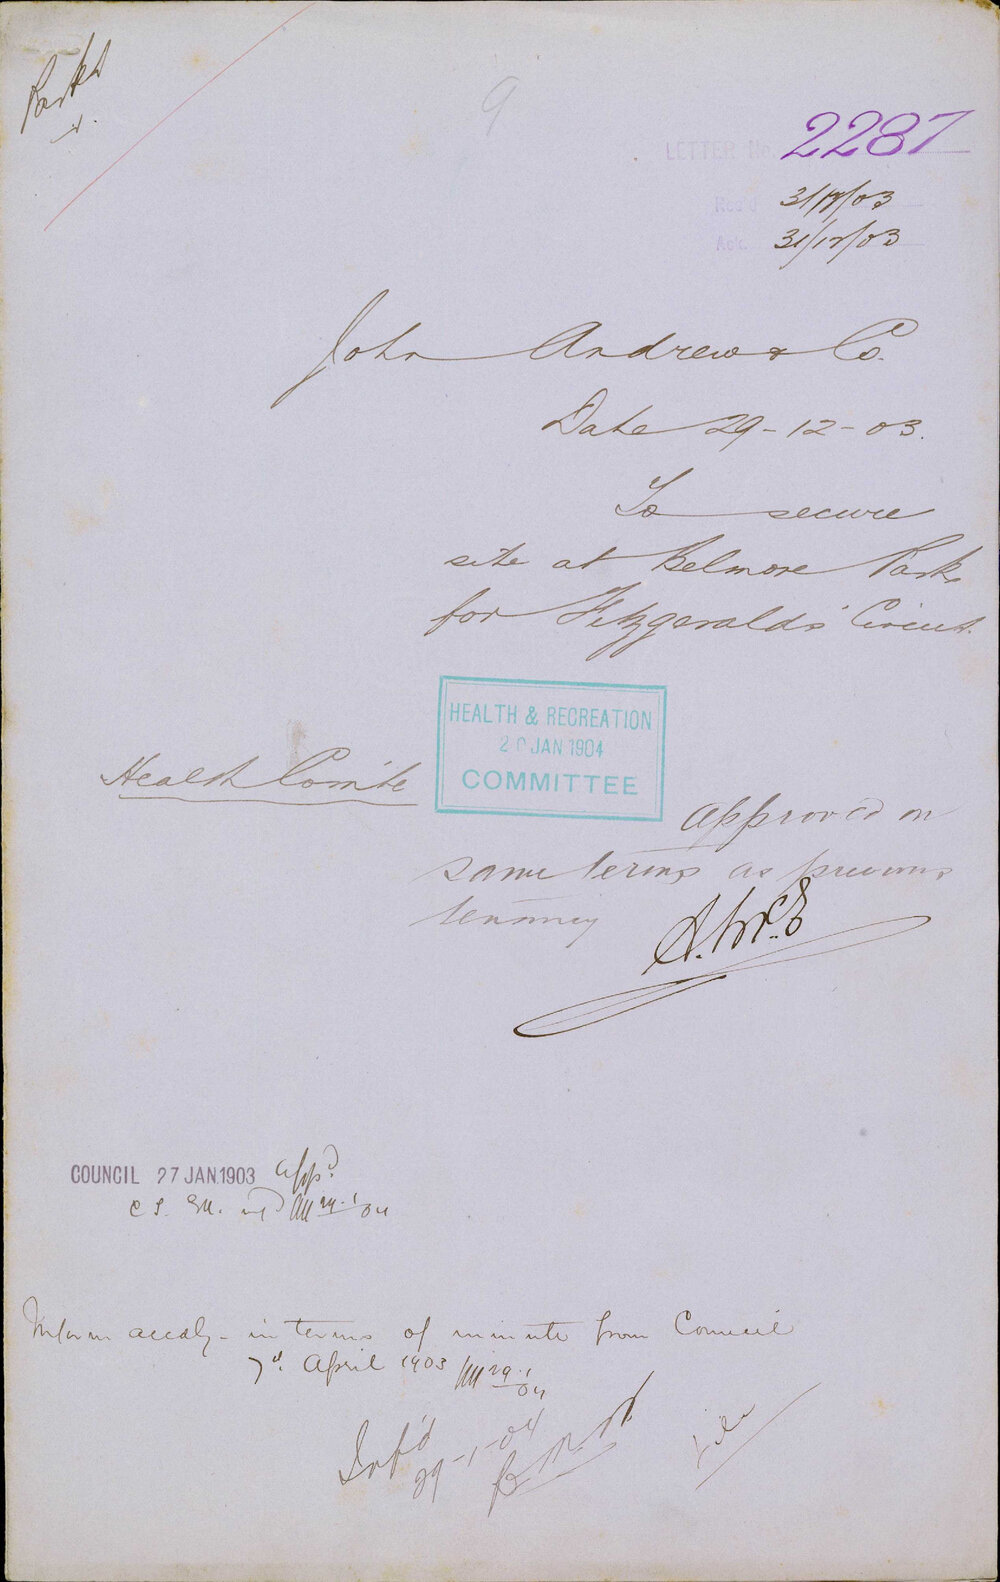 Parks
9
LETTER No. 2287
Rec'd 31/12/03
Ack. 31/12/03
John Andrew & Co.
Date 29-12-03.
To secure
site at Belmore Park
for Fitzgeralds' Circus.
HEALTH & RECREATION
20 JAN 1904
COMMITTEE
Health Com'te
approved on
same terms as previous
tenancy
COUNCIL 27 JAN. 1903 appd
29.1/04
Inform accdly - in terms of minute from Council
7th April 1903 29.1/04
Inf'd
29-1-04
File